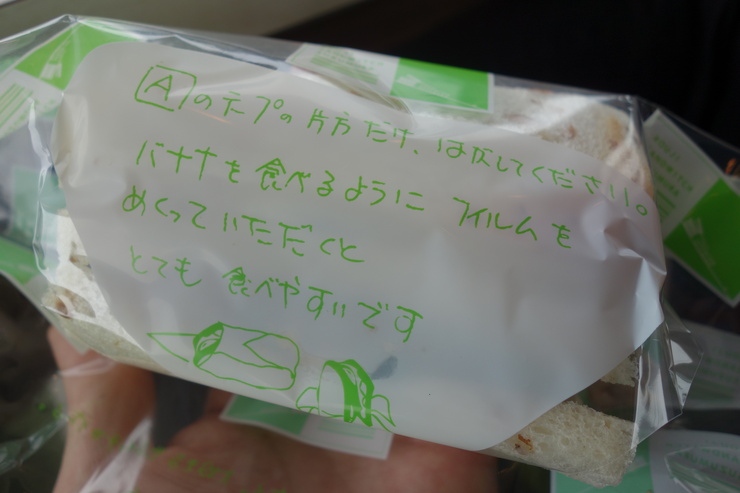 Aのテープの片方だけ、はがしてください。
バナナを食べるように フィルムを
めくっていただくと
とても 食べやすいです